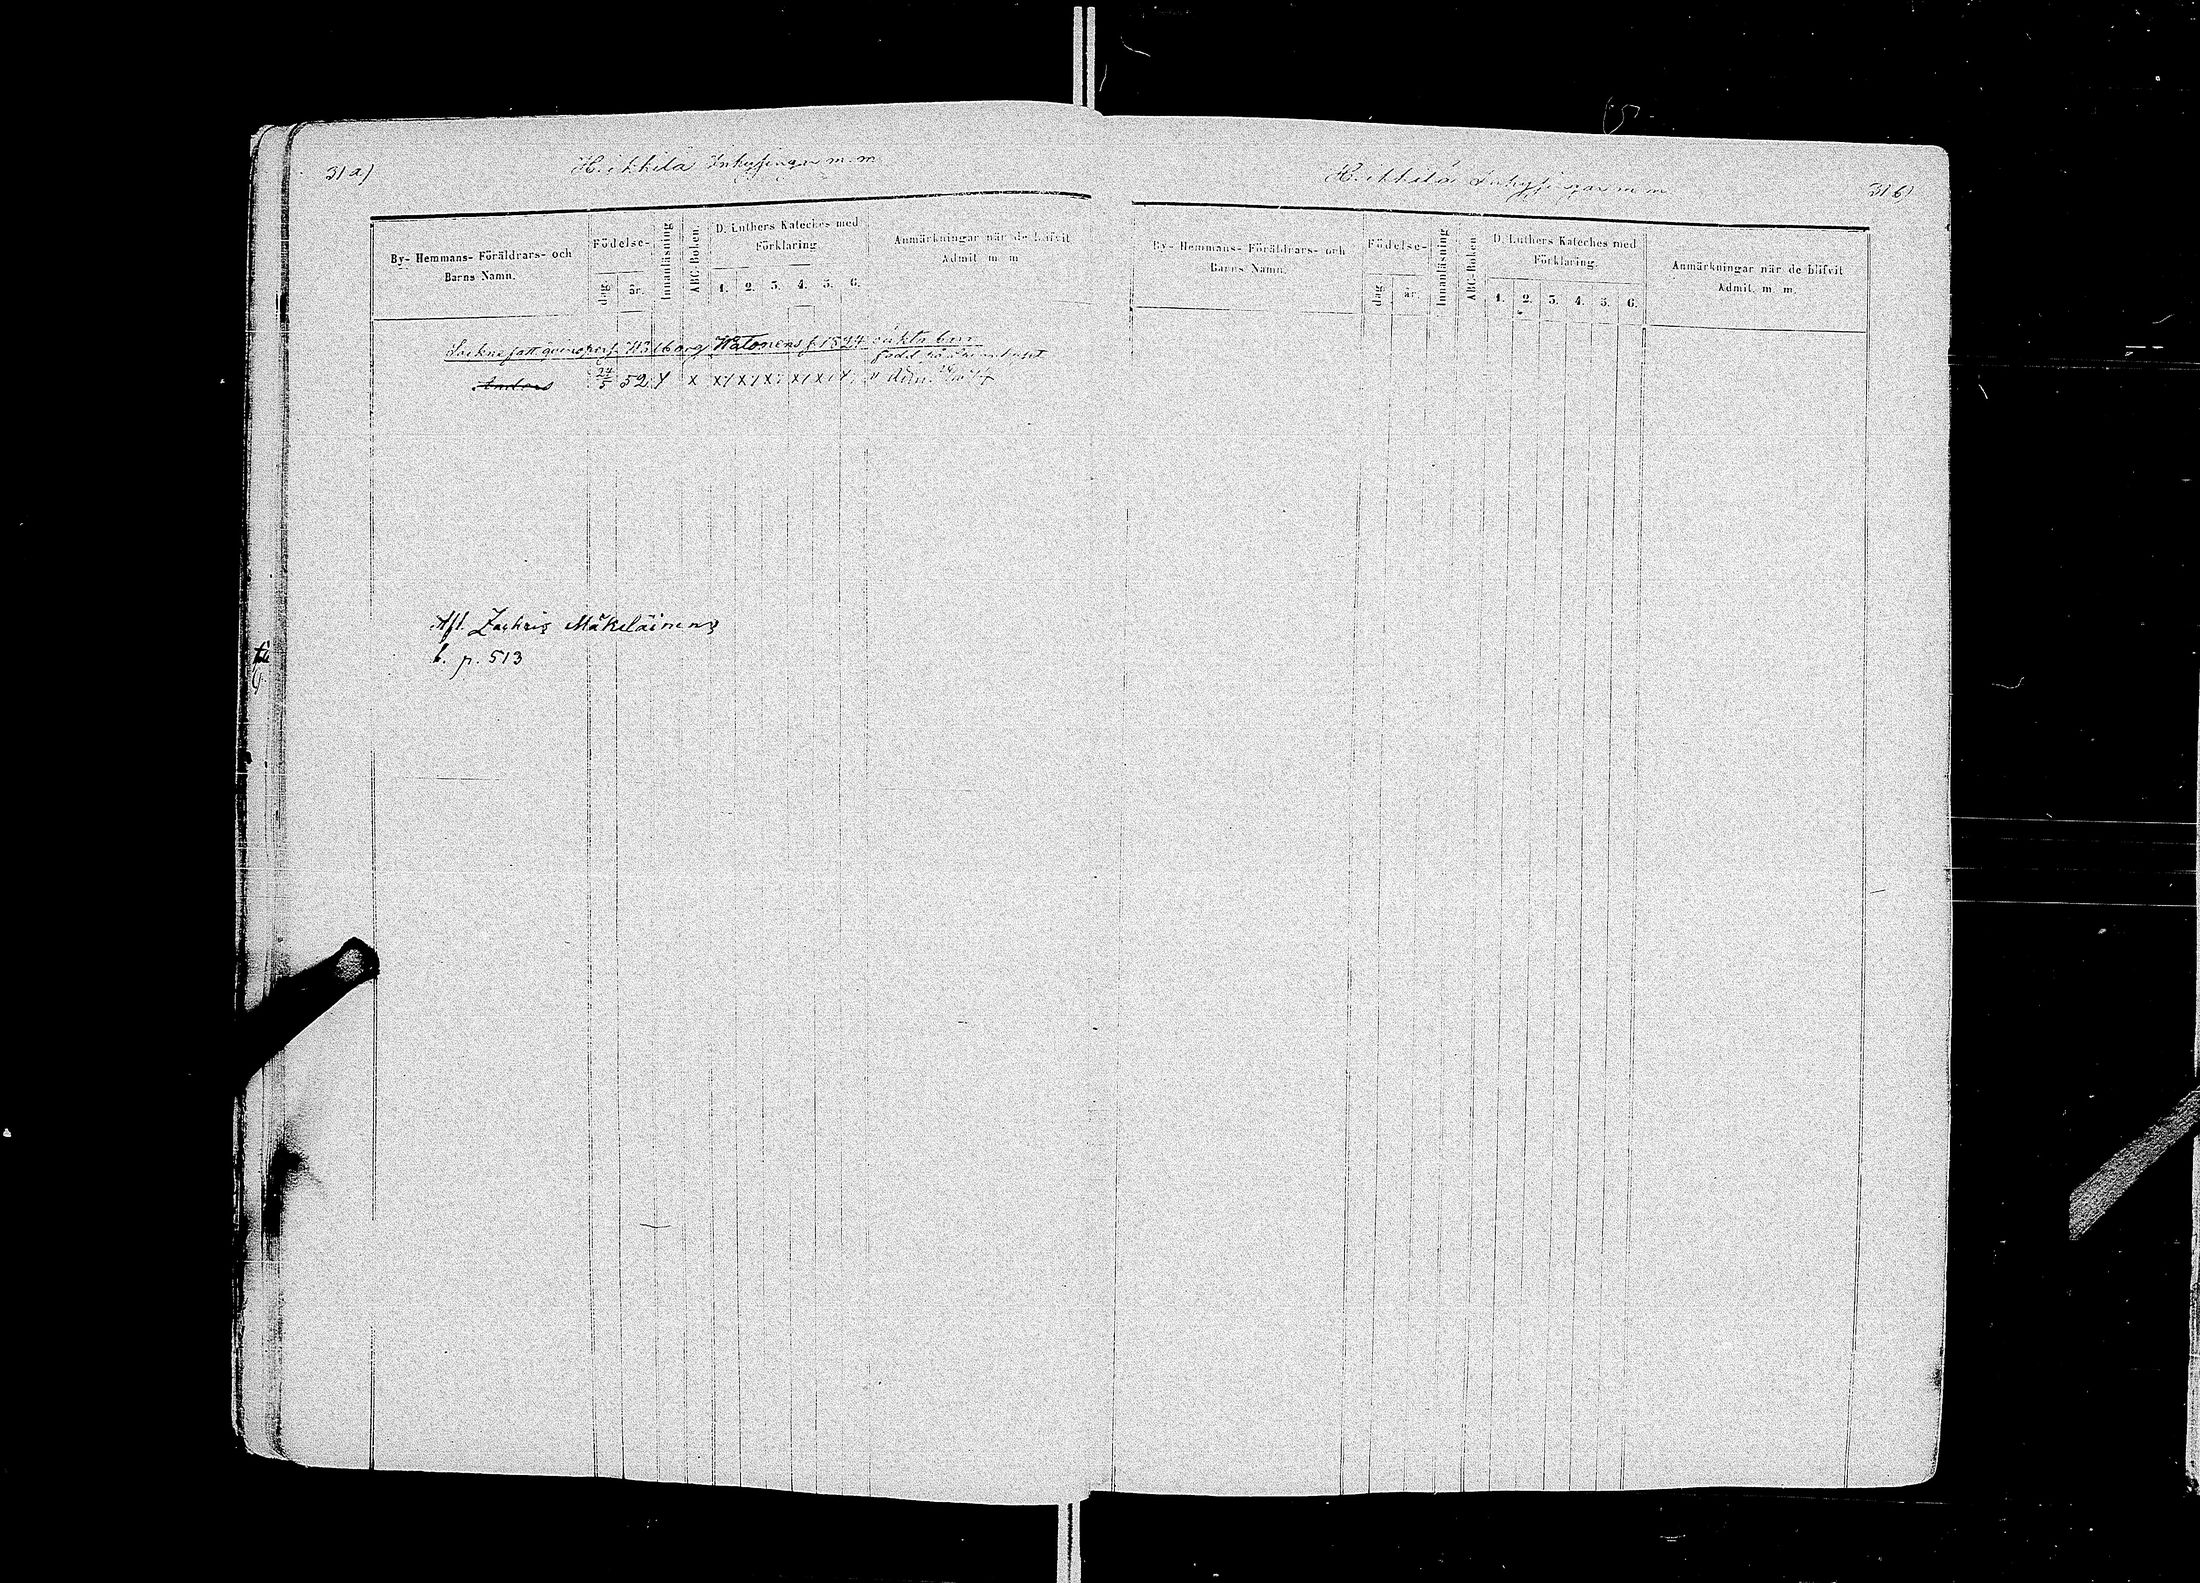 31 a)
Heikkilä Inhysingar m. m.
By- Hemmans- Föräldrars- och
Barns Namn.
Födelse-
dag
år.
Innanläsning
ABC-Boken.
D. Luthers Kateches med
Förklaring
1. 2. 3. 4. 5. 6.
Anmärkningar när de blifvit
Admit. m. m.
Walborg Watonens f. 1824 oäkta barn
Anders 24/5 52
Afl. Zachris Mäkeläinens
b. p. 513
Heikkilä Inhysingar m m
31 b)
By- Hemmans- Föräldrars- och
Barns Namn.
Födelse-
dag
år.
Innanläsning
ABC-Boken
D. Luthers Kateches med
Förklaring.
1. 2. 3. 4. 5. 6.
Anmärkningar när de blifvit
Admit. m. m.